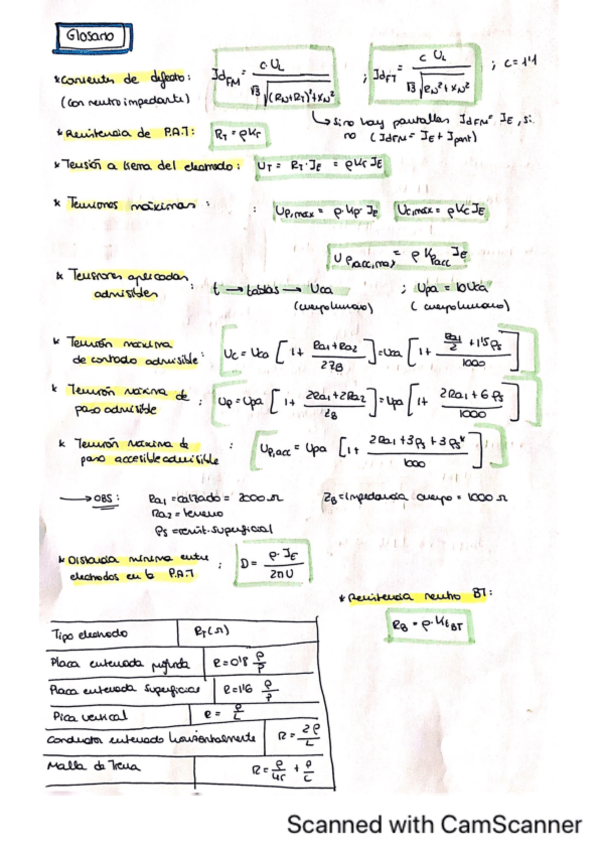 Glosario
* Corriente de defecto: (con neutro impedante) IdFM = c·UL / √3 √((RN+RT)²+XN²) ; IdFT = c UL / √3 √(RN²+XN²) ; c=1'1
↳ si no hay pantallas IdFM = IE, si no (IdFM = IE + Ipant)
* Resistencia de P.A.T: RT = ρKr
* Tensión a tierra del electrodo: UT = RT·IE = ρKr IE
* Tensiones máximas : : Up,max = ρ·Kp·IE Uc,max = ρKc IE
Up,acc,max = ρ Kpacc IE
* Tensiones aplicadas admisibles : t → tablas → Uca (cuerpo humano) ; Upa = 10Uca (cuerpo humano)
* Tensión máxima de contacto admisible : Uc = Uca [1+ (Ra1+Ra2)/(2ZB)] = Uca [1+ (Ra1/2 + 1'5ρs)/1000]
* Tensión máxima de paso admisible : Up = Upa [1+ (2Ra1+2Ra2)/ZB] = Upa [1+ (2Ra1+6ρs)/1000]
* Tensión máxima de paso accesible admisible : Up,acc = Upa [1+ (2Ra1+3ρs+3ρs*)/1000]
→ OBS: Ra1 = calzado = 2000 Ω ZB = impedancia cuerpo = 1000 Ω
Ra2 = terreno
ρs = resist. superficial
* Distancia mínima entre electrodos en la P.A.T : D = ρ·IE / 2πU
* Resistencia neutro BT:
RB = ρ·KrBT
Tipo electrodo RT(Ω)
Placa enterrada profunda R = 0'8 ρ/P
Placa enterrada superficial R = 1'6 ρ/P
Pica vertical R = ρ/L
Conductor enterrado horizontalmente R = 2ρ/L
Malla de tierra R = ρ/4r + ρ/L
Scanned with CamScanner